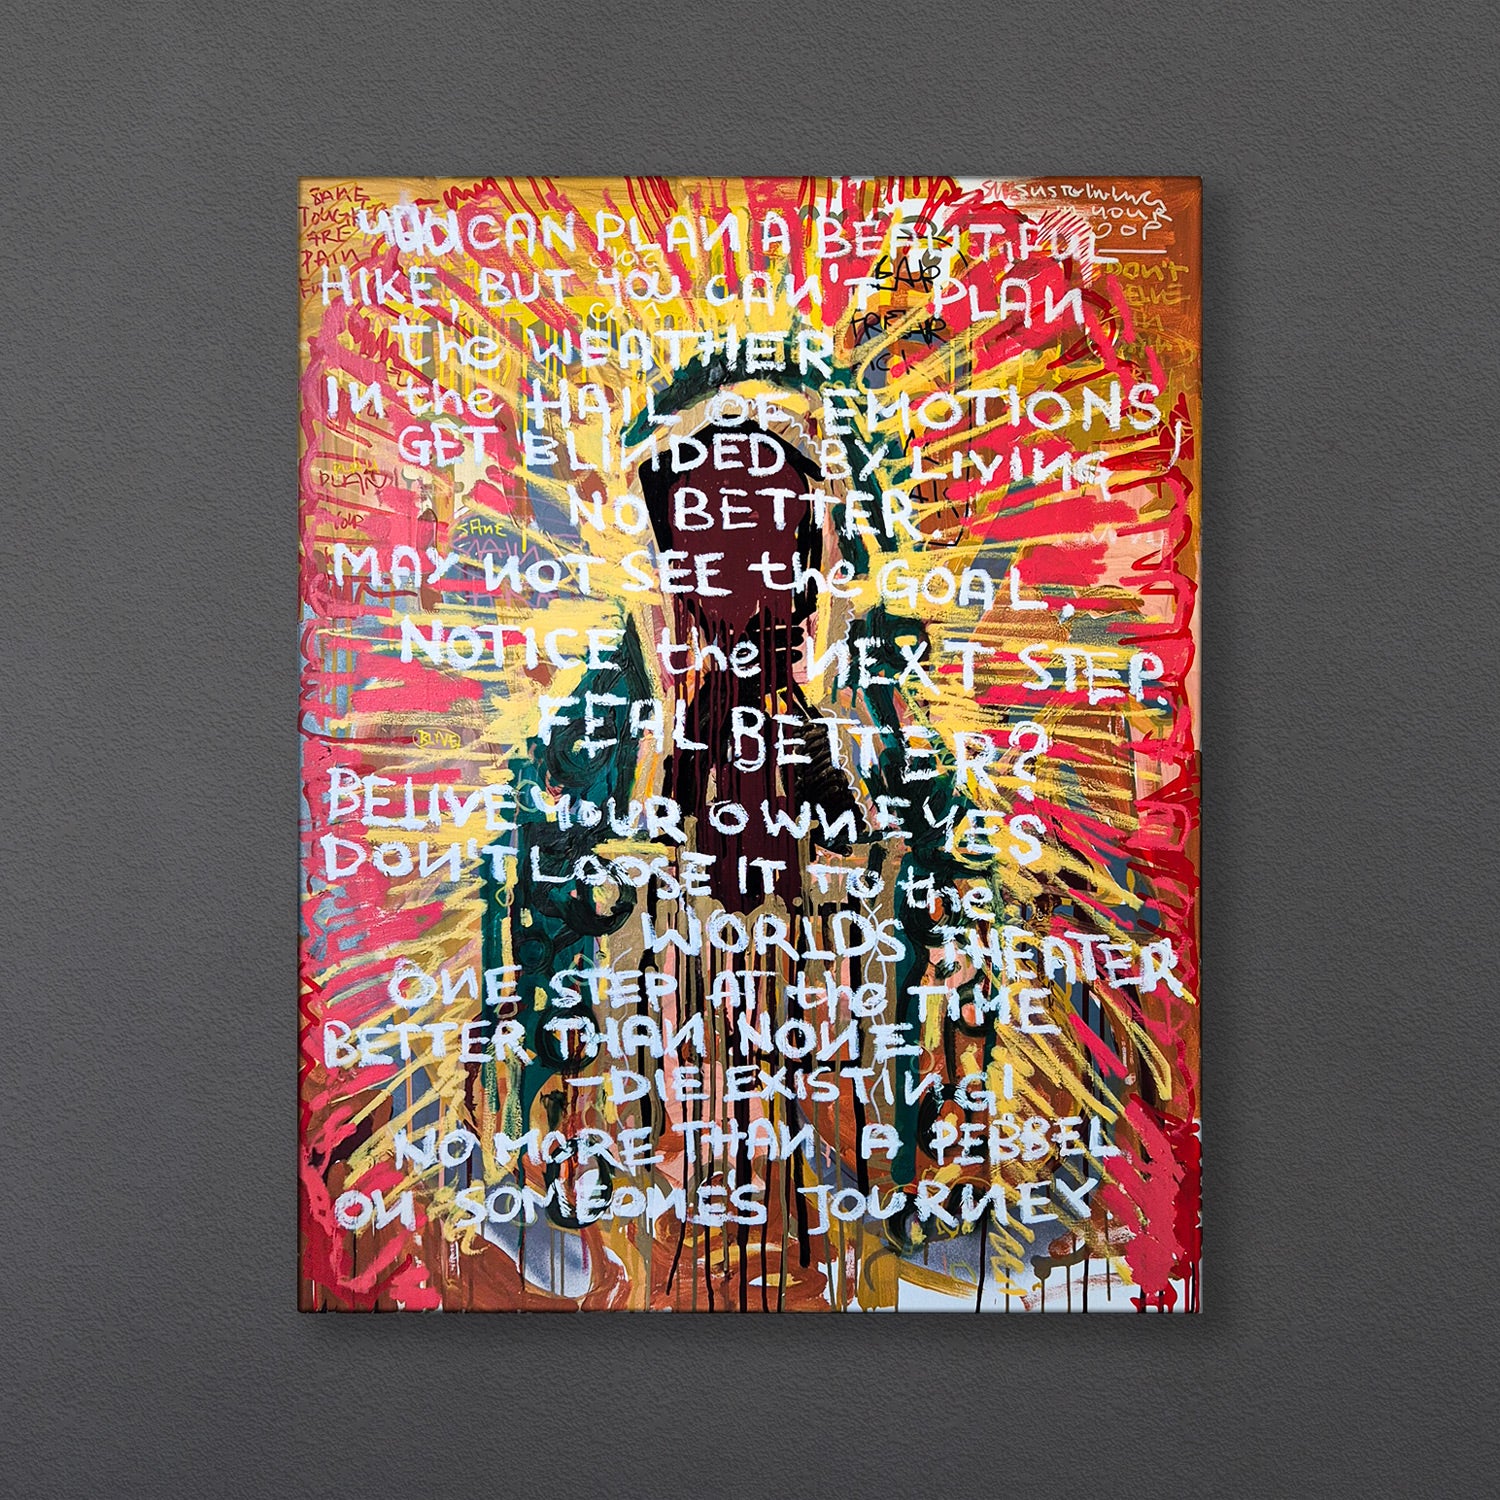 SANE
TOUGHT
ARE
PAIN
SUSTAINING
YOUR
OOP
YOU CAN PLAN A BEAUTIFUL
HIKE, BUT YOU CAN'T PLAN
the WEATHER
IN the HAIL OF EMOTIONS,
GET BLINDED BY LIVING
NO BETTER.
MAY NOT SEE the GOAL,
NOTICE the NEXT STEP.
FEAL BETTER?
BELIVE YOUR OWN EYES
DON'T LOOSE IT TO the
WORLDS THEATER
ONE STEP AT the TIME
BETTER THAN NONE
-DIE EXISTING!
NO MORE THAN A PEBBEL
ON SOMEONES JOURNEY.
DON'T
SANE
BLIVE